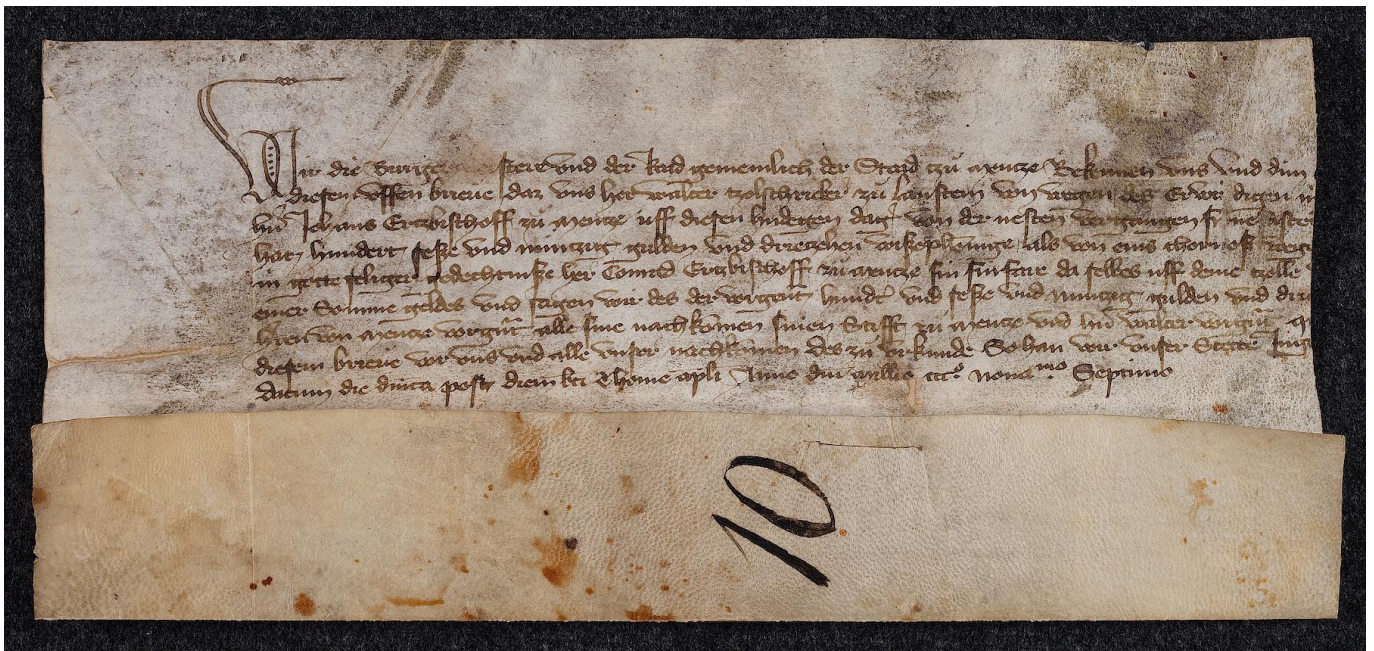 Wir die Burge stere vnd der Rad gemeinlich der Stad tzů Mentze Bekennen vns vnd
diesen vffen brieue daz vns her walter tzolschriber zů lanstein von wegen des Erwirdigen
hern Johans Ertzbischoff zů Mentze uff diesen hudegen dag von der nesten vergangen
hat hundert seße vnd nuntzig gulden vnd drietzehen wißephennige als von eins thornoß
in gotte seliger gedechtniße her Conrad Ertzbischoff zů Mentze sin furfare da selbes uff deme tzolle
einer Somme geldes vnd sagen wir des der vorgent hundert vnd seße vnd nuntzig gulden vnd
hren von Mentze vorgnt alle sine nachkomen sinen Stifft zů Mentze vnd hern walter vorgnt
diesem brieue vor vns vnd alle vnser nachkomen des zů vrkunde So han wir vnser Stette
datum die dnica post diem bti Thome apli Anno dni Millio cccº nonamo Septimo
10